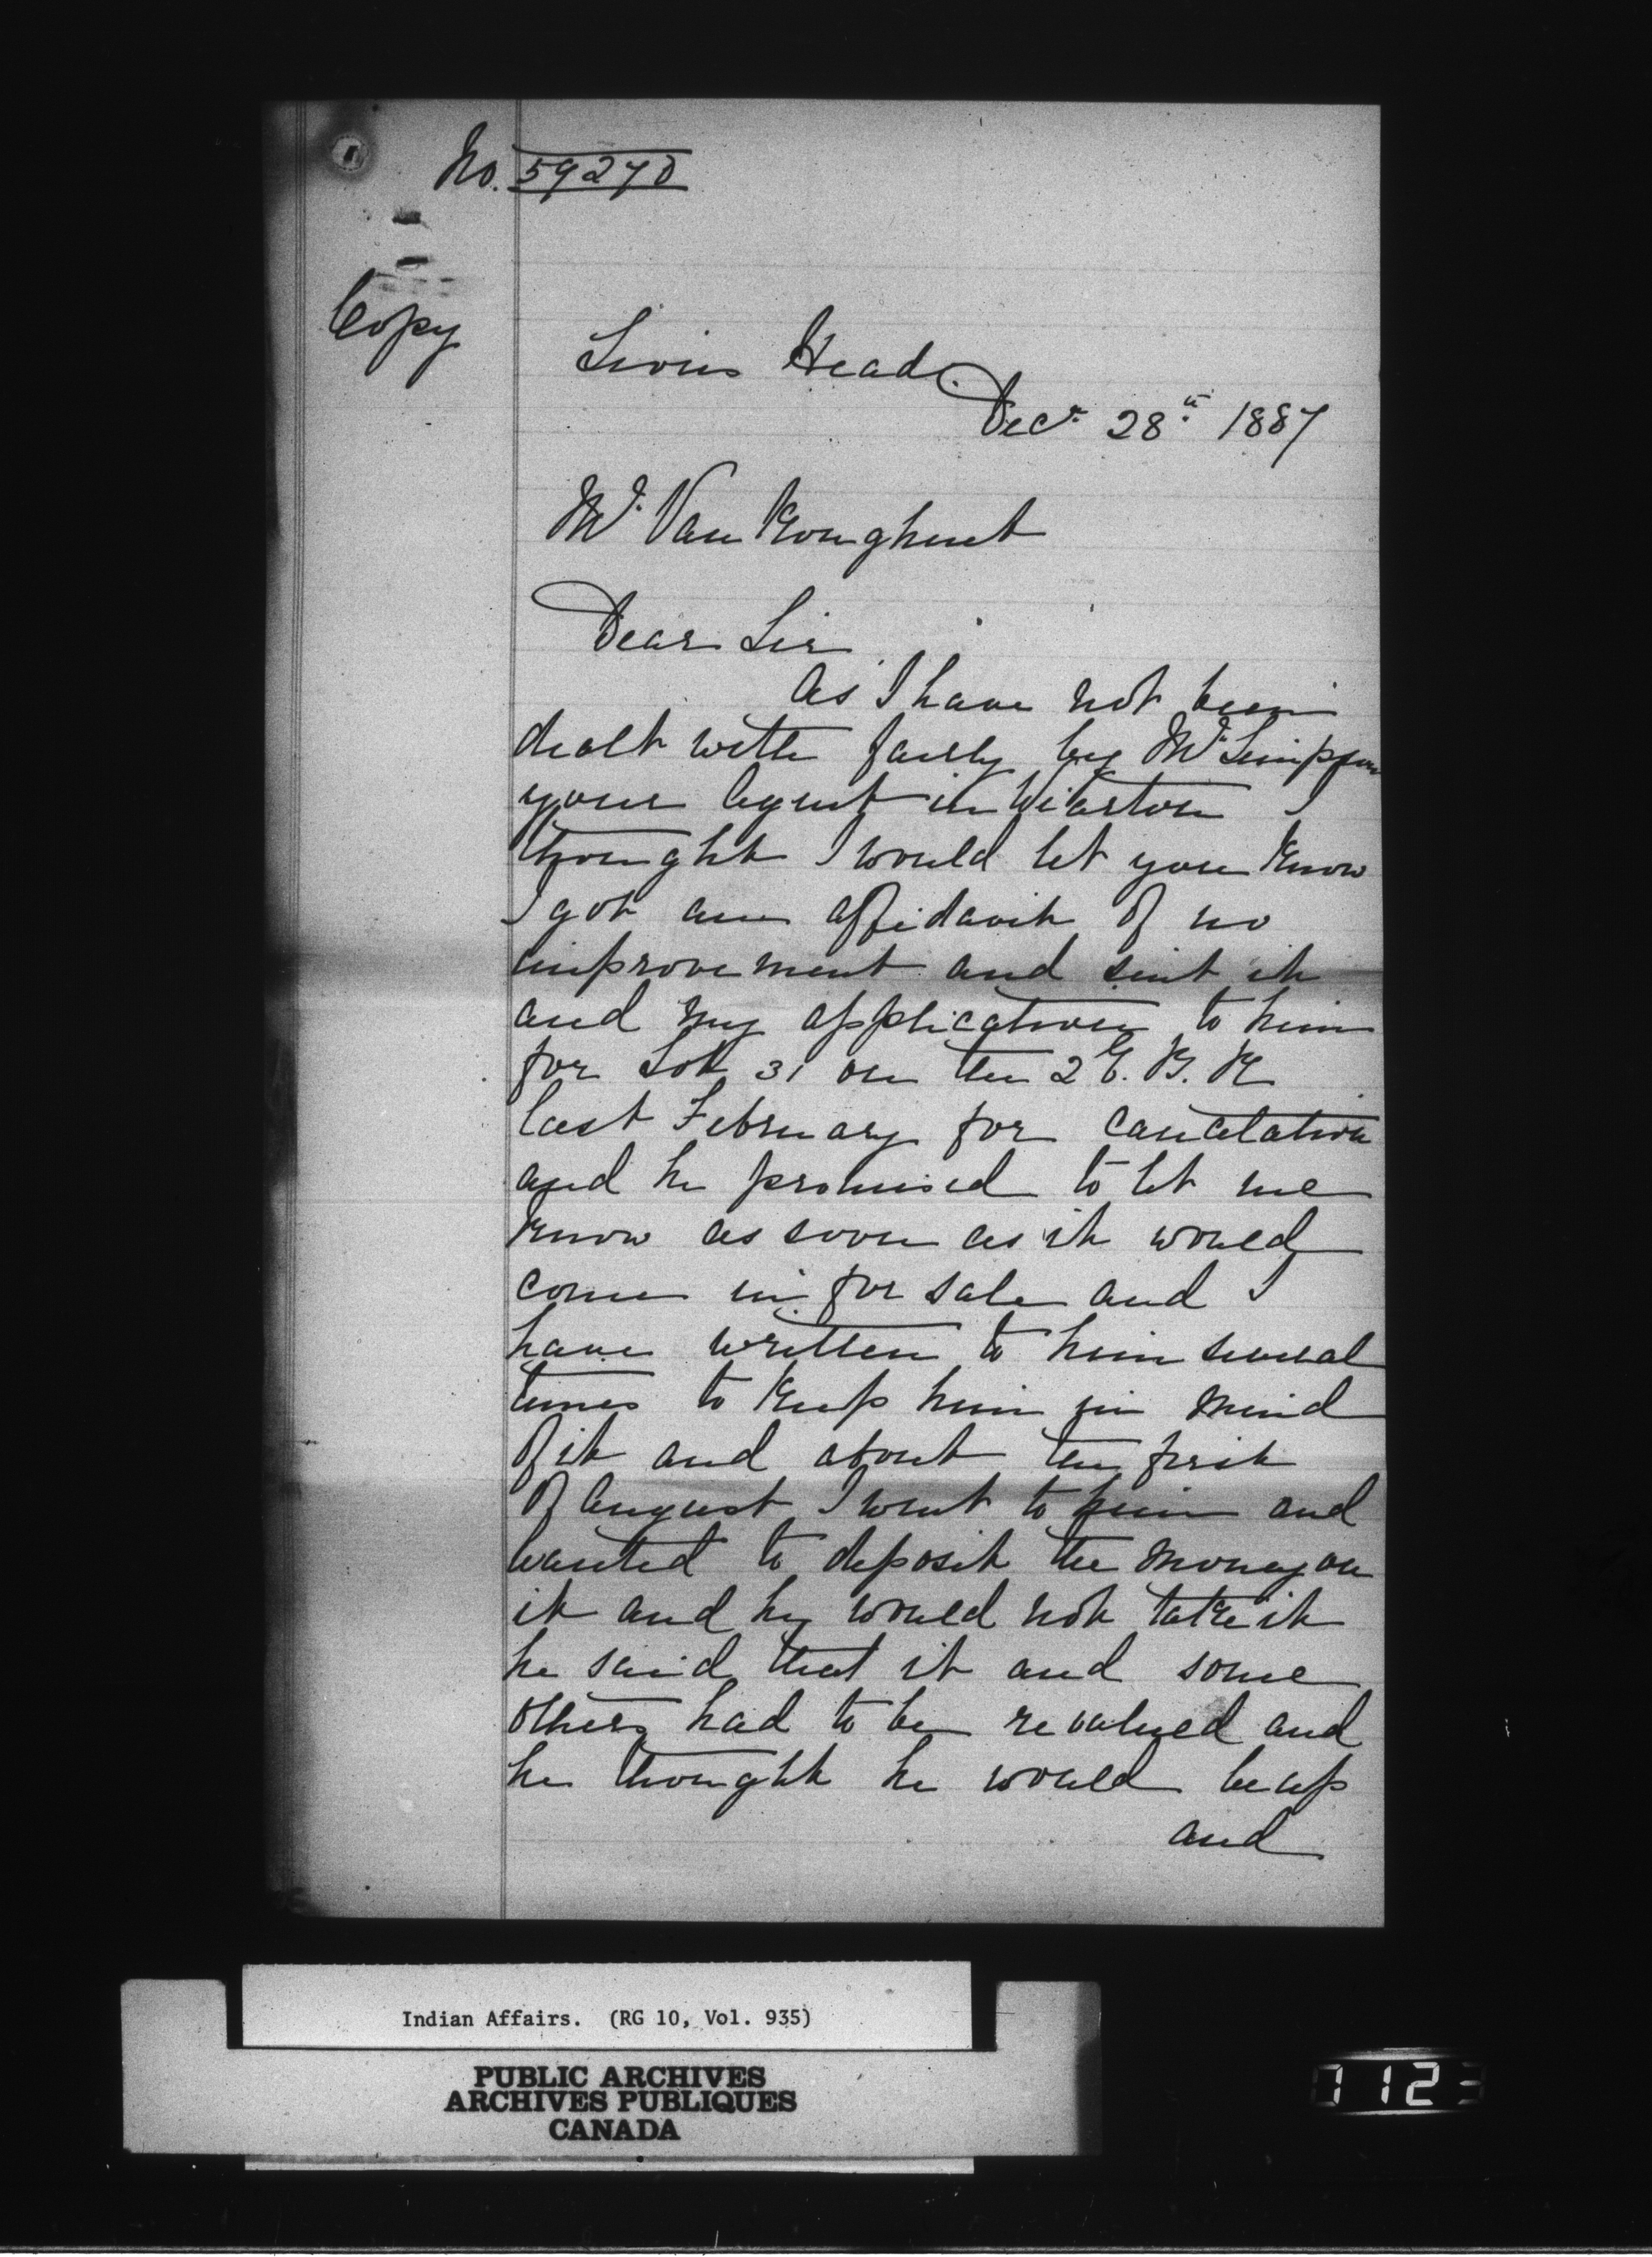 No. 59270
Copy
Lions Head.
Decr. 28th 1887
Mr. VanKoughnet
Dear Sir
As I have not been
dealt with fairly by Mr Simpson
your Agent in Wiarton I
thought I would let you know
I got an affidavit of no
improvement and sent it
and my application to him
for Lot 31 on the 2 E. B. R
last February for cancelation
and he promised to let me
know as soon as it would
come in for sale and I
have written to him several
times to keep him in mind
of it and about the first
of August I went to him and
wanted to deposit the money on
it and he would not take it
he said that it and some
others had to be revalued and
he thought he would be up
and
Indian Affairs. (RG 10, Vol. 935)
PUBLIC ARCHIVES
ARCHIVES PUBLIQUES
CANADA
1123